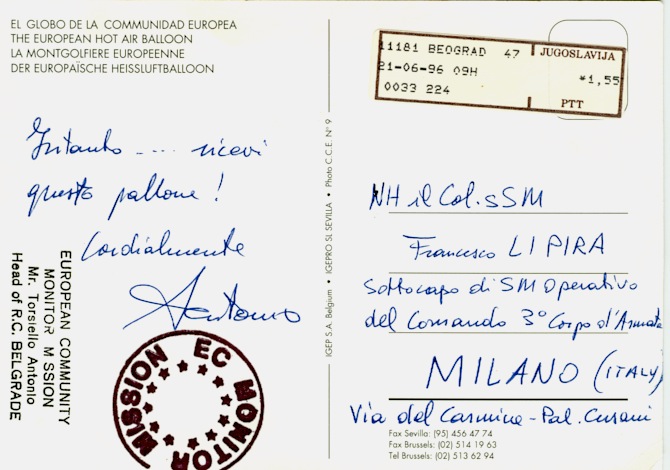 EL GLOBO DE LA COMUNIDAD EUROPEA
THE EUROPEAN HOT AIR BALLOON
LA MONTGOLFIERE EUROPEENNE
DER EUROPAÏSCHE HEISSLUFTBALLOON
Intanto .... ricevi
questo pallone!
Cordialmente
Antonio
EUROPEAN COMMUNITY
MONITOR M SSION
Mr. Torsiello Antonio
Head of R.C. BELGRADE
EC MONITOR MISSION
IGEP S.A. Belgium • IGEPRO SL SEVILLA • Photo C.C.E. N° 9
11181 BEOGRAD 47
21-06-96 09H
0033 224
JUGOSLAVIJA
*1,55
PTT
NH il Col. sSM
Francesco LIPIRA
Sottocapo di SM Operativo
del Comando 3° Corpo d'Armata
MILANO (ITALY)
Via del Carmine - Pal. Cusani
Fax Sevilla: (95) 456 47 74
Fax Brussels: (02) 514 19 63
Tel Brussels: (02) 513 62 94